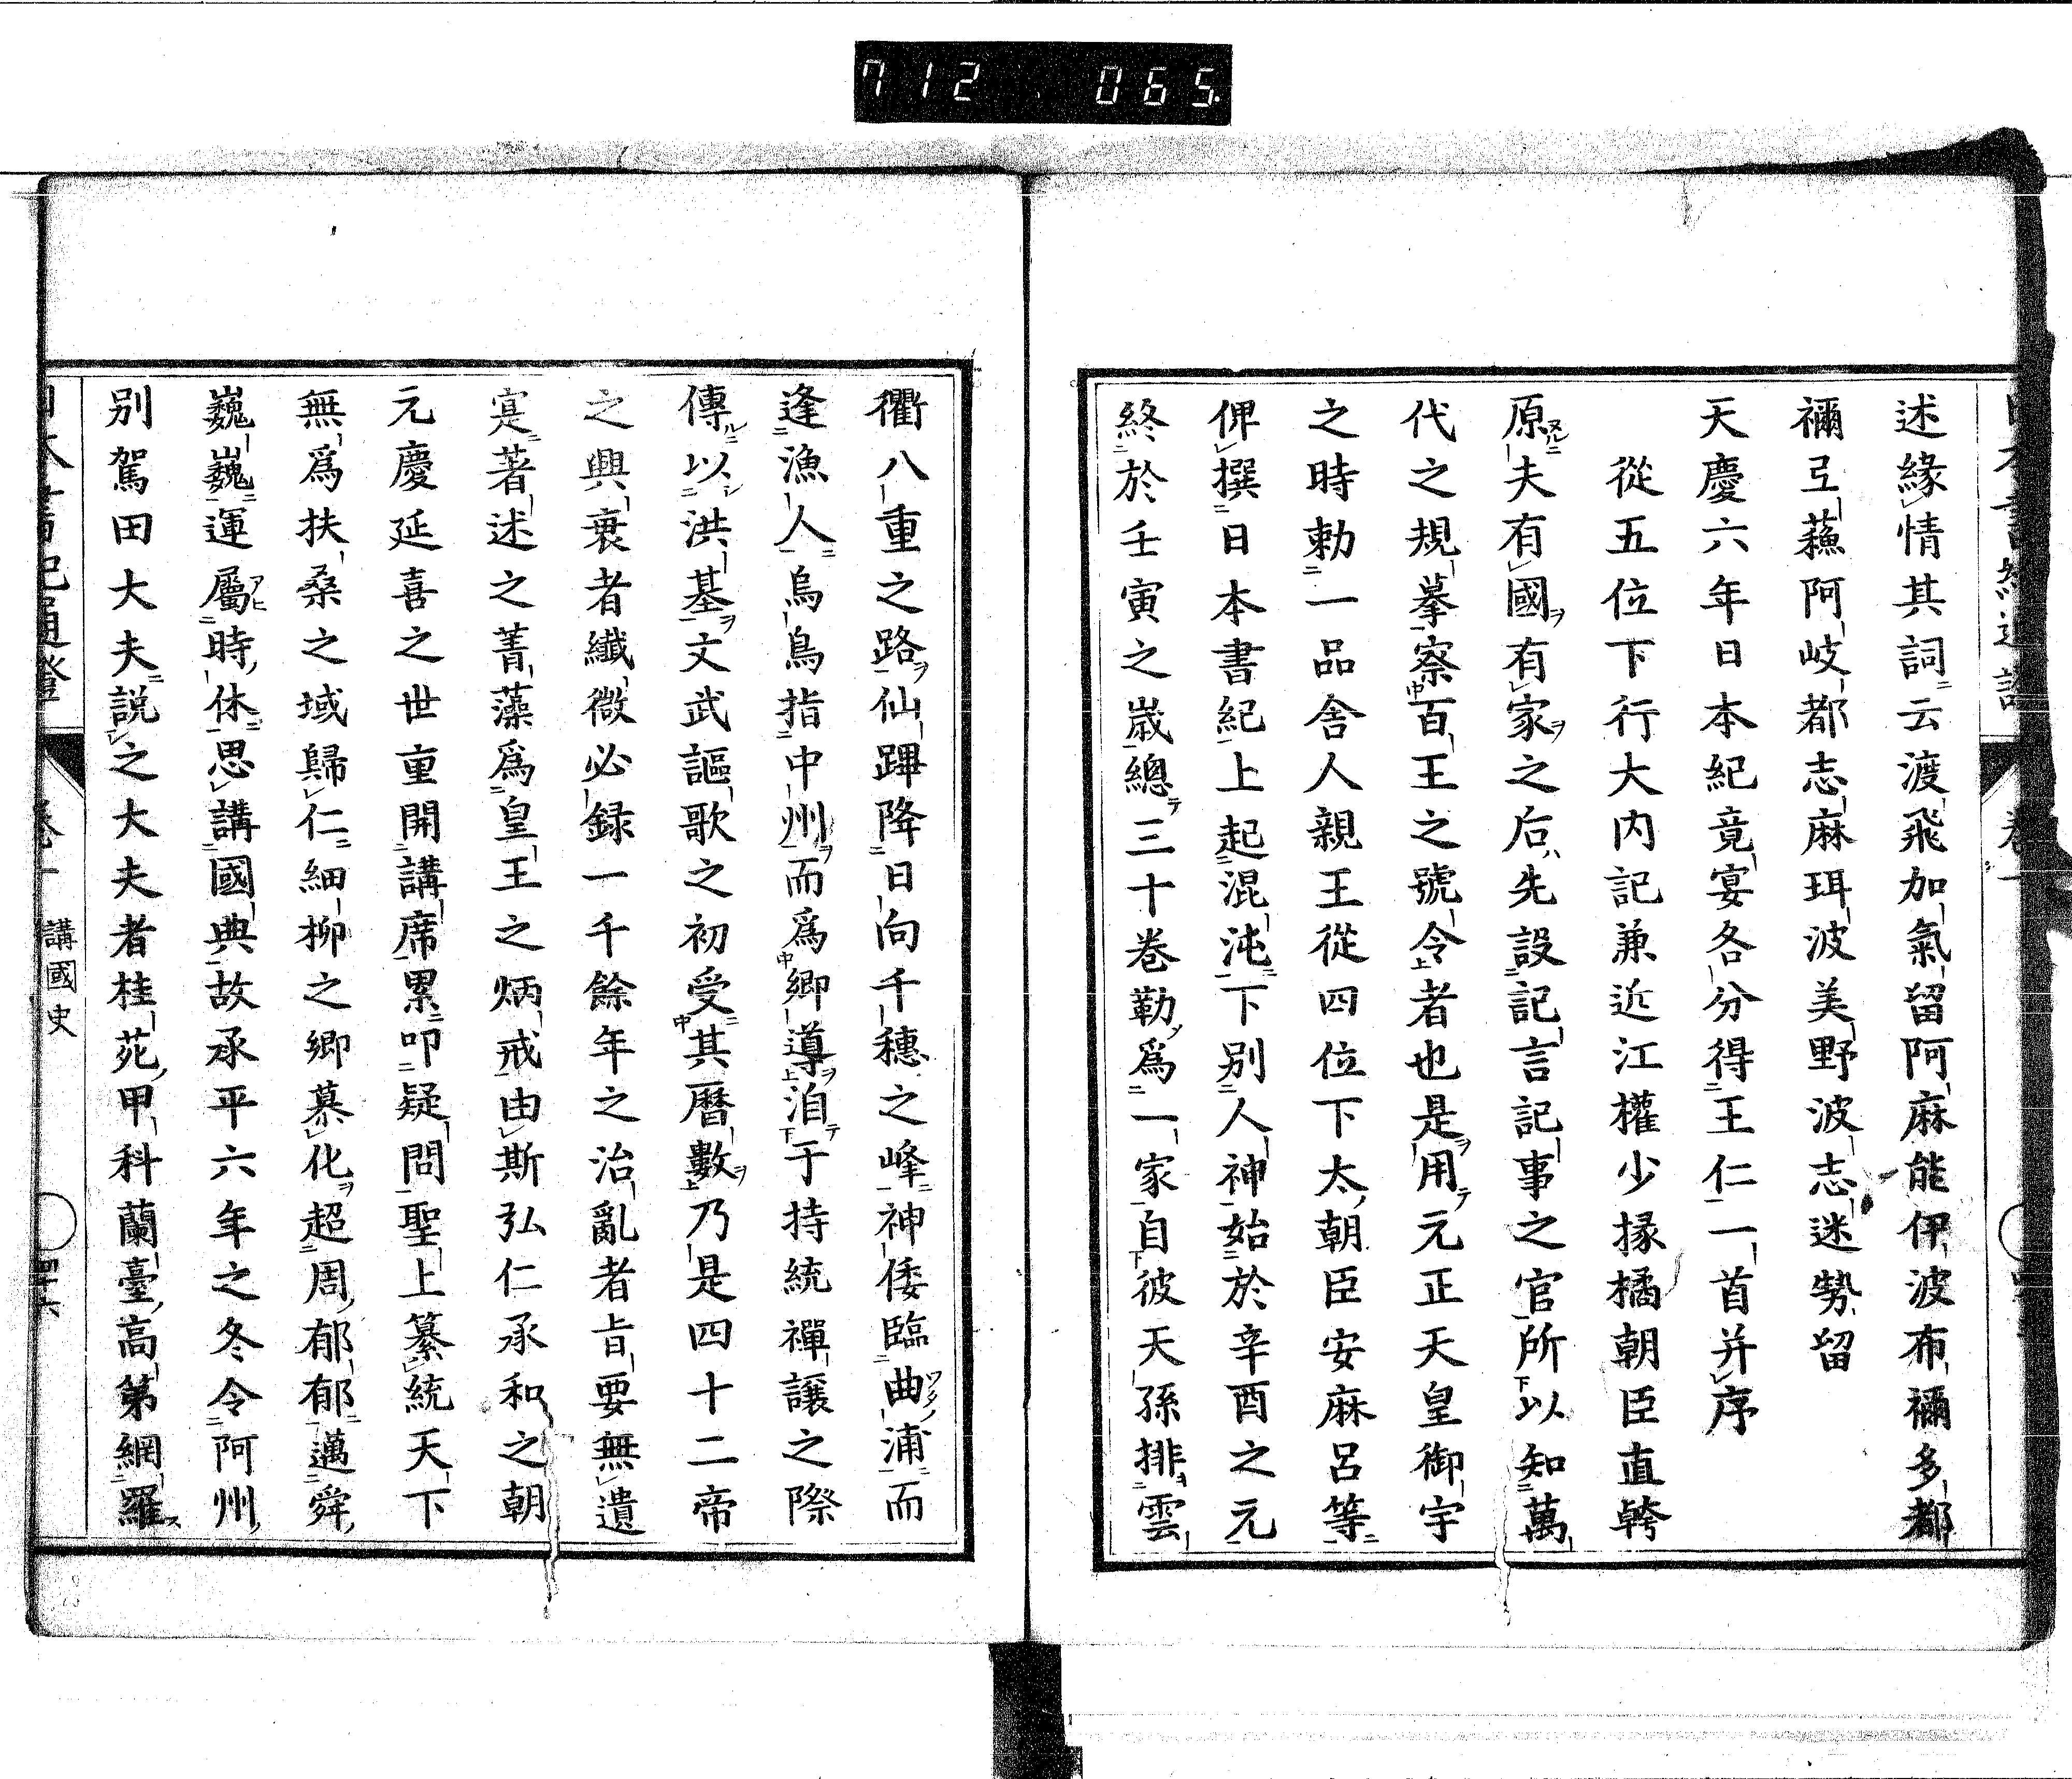 712 065
述緣情其詞云渡飛加氣留阿麻能伊波布禰多都
禰弖蘓阿岐都志麻珥波美野波志迷勢留
天慶六年日本紀竟宴各分得王仁一首并序
從五位下行大内記兼近江權少掾橘朝臣直幹
原夫有國有家之后先設記言記事之官所以知萬
代之規摹察百王之號令者也是用元正天皇御宇
之時勅一品舍人親王從四位下太朝臣安麻呂等
俾撰日本書紀上起混沌下別人神始於辛酉之元
終於壬寅之歲總三十卷勒爲一家自彼天孫排雲
衢八重之路仙蹕降日向千穗之峰神倭臨曲浦而
逢漁人烏鳥指中州而爲鄉導洎于持統禪讓之際
傳以洪基文武謳歌之初受其曆數乃是四十二帝
之興衰者纖微必録一千餘年之治亂者旨要無遺
寔著述之菁藻爲皇王之炳戒由斯弘仁承和之朝
元慶延喜之世重開講席累叩疑問聖上纂統天下
無爲扶桑之域歸仁細柳之鄉慕化超周郁郁邁舜
巍巍運屬時休思講國典故承平六年之冬令阿州
別駕田大夫説之大夫者桂苑甲科蘭臺高第網羅
講國史
四十六